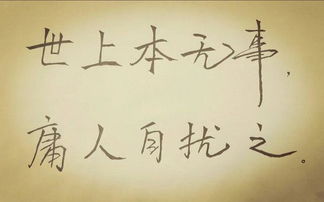 世上本无事，
庸人自扰之。